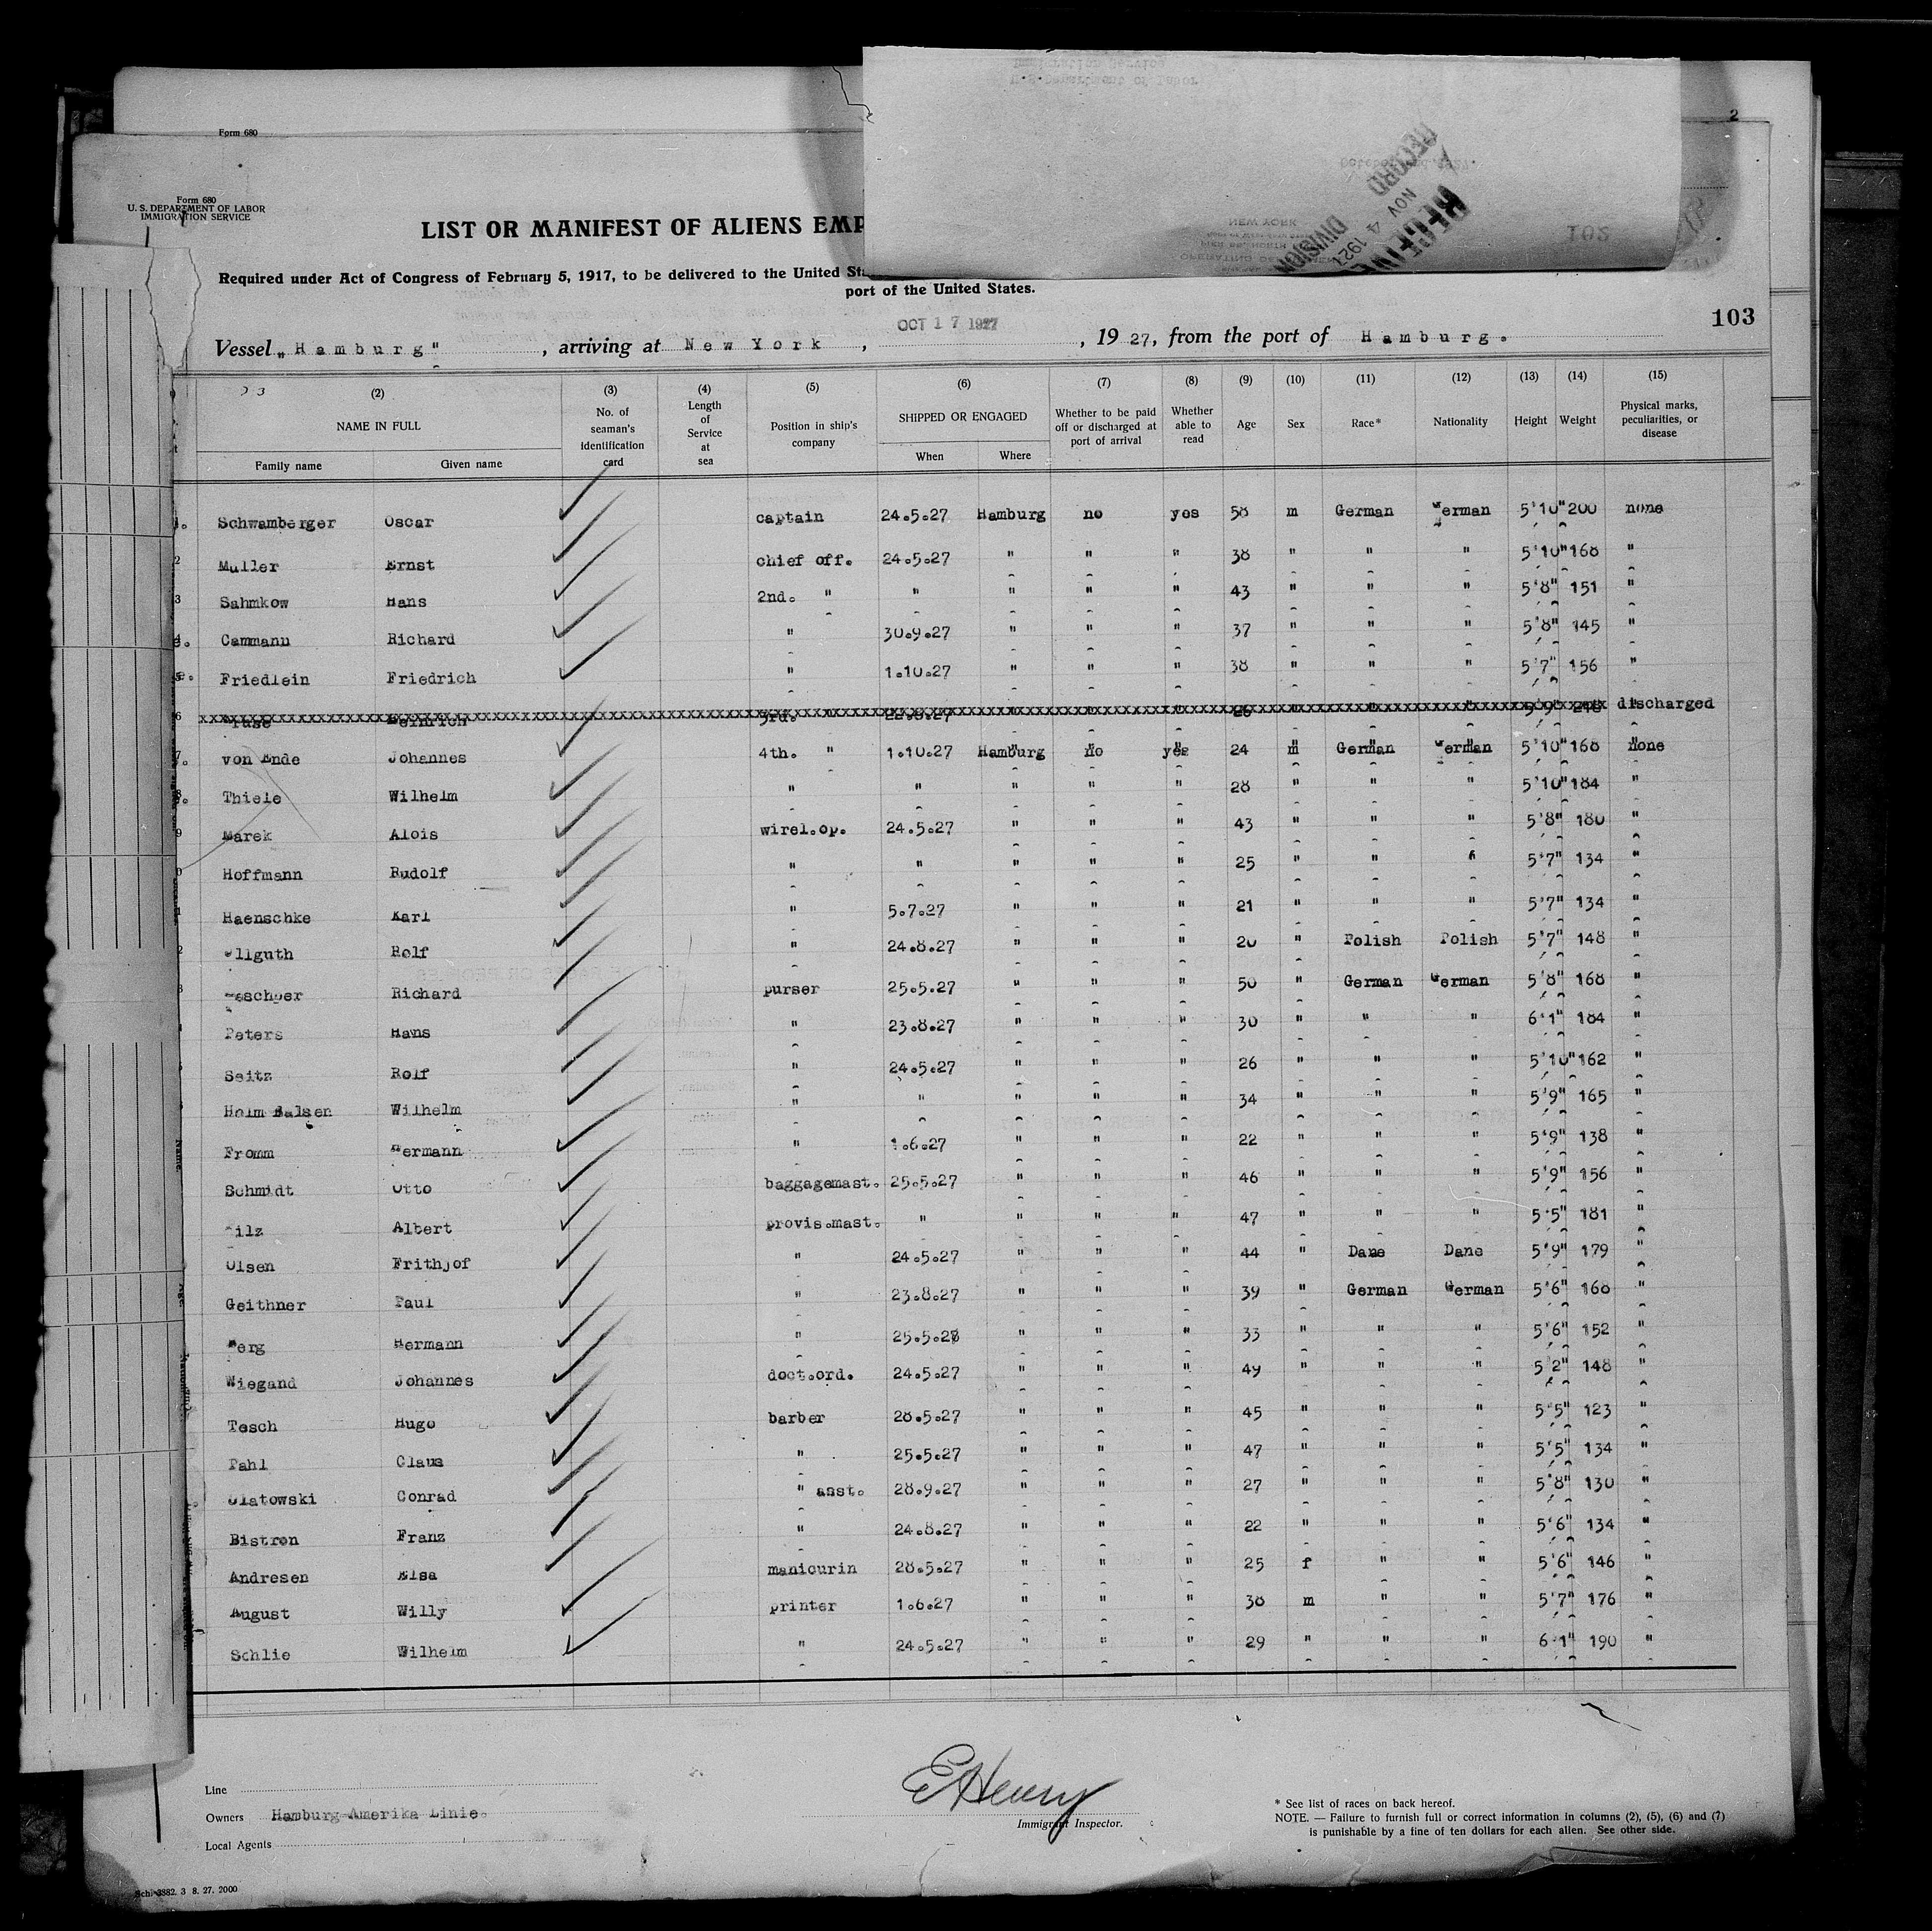 Form 680
2
Form 680
U. S. DEPARTMENT OF LABOR
IMMIGRATION SERVICE
LIST OR MANIFEST OF ALIENS EMP
RECEIVED
NOV 4 1927
RECORD DIVISION
Required under Act of Congress of February 5, 1917, to be delivered to the United
port of the United States.
103
OCT 17 1927
Vessel "Hamburg", arriving at New York, , 1927, from the port of Hamburg.
(2) (3) (4) (5) (6) (7) (8) (9) (10) (11) (12) (13) (14) (15)
NAME IN FULL No. of seaman's identification card Length of Service at sea Position in ship's company SHIPPED OR ENGAGED Whether to be paid off or discharged at port of arrival Whether able to read Age Sex Race* Nationality Height Weight Physical marks, peculiarities, or disease
Family name Given name When Where
Schwamberger Oscar captain 24.5.27 Hamburg no yes 58 m German German 5'10" 200 none
2 Muller Ernst chief off. 24.5.27 " " " 38 " " " 5'10" 168 "
3 Sahmkow Hans 2nd. " " " " " 43 " " " 5'8" 151 "
4. Cammann Richard " 30.9.27 " " " 37 " " " 5'8" 145 "
5. Friedlein Friedrich " 1.10.27 " " " 38 " " " 5'7" 156 "
6 Heinrich 3rd. " " " " " " " 5'9" discharged
7. von Ende Johannes 4th. " 1.10.27 Hamburg no yes 24 m German German 5'10" 168 none
8. Thiele Wilhelm " " " " " 28 " " " 5'10" 184 "
9 Marek Alois wirel.op. 24.5.27 " " " 43 " " " 5'8" 180 "
Hoffmann Rudolf " " " " " 25 " " " 5'7" 134 "
Haenschke Karl " 5.7.27 " " " 21 " " " 5'7" 134 "
Rolf " 24.8.27 " " " 20 " Polish Polish 5'7" 148 "
Richard purser 25.5.27 " " " 50 " German German 5'8" 168 "
Peters Hans " 23.8.27 " " " 30 " " " 6'1" 184 "
Seitz Rolf " 24.5.27 " " " 26 " " " 5'10" 162 "
Holm Balsen Wilhelm " " " " " 34 " " " 5'9" 165 "
Fromm Hermann " 1.6.27 " " " 22 " " " 5'9" 138 "
Schmidt Otto baggagemast. 25.5.27 " " " 46 " " " 5'9" 156 "
Albert provis.mast. " " " " 47 " " " 5'5" 181 "
Olsen Frithjof " 24.5.27 " " " 44 " Dane Dane 5'9" 179 "
Geithner Paul " 23.8.27 " " " 39 " German German 5'6" 168 "
Hermann " " " " 33 " " " 5'6" 152 "
Wiegand Johannes doct.ord. 24.5.27 " " " 49 " " " 5'2" 148 "
Tesch Hugo barber 28.5.27 " " " 45 " " " 5'5" 123 "
Pahl Claus " 25.5.27 " " " 47 " " " 5'5" 134 "
Conrad " asst. 28.9.27 " " " 27 " " " 5'8" 130 "
Bistron Franz " 24.8.27 " " " 22 " " " 5'6" 134 "
Andresen Elsa manicurin 28.5.27 " " " 25 f " " 5'6" 146 "
August Willy printer 1.6.27 " " " 38 m " " 5'7" 176 "
Schlie Wilhelm " 24.5.27 " " " 29 " " " 6'1" 190 "
Line
Owners Hamburg-Amerika Linie.
Local Agents
EHenry
Immigrant Inspector.
* See list of races on back hereof.
NOTE. — Failure to furnish full or correct information in columns (2), (5), (6) and (7)
is punishable by a fine of ten dollars for each alien. See other side.
Schl. 3882. 3 8. 27. 2000